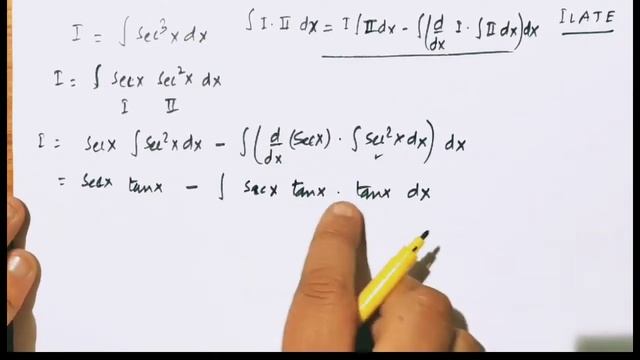 I = ∫ sec³x dx
∫ I · II dx = I ∫ II dx − ∫ (d/dx I · ∫ II dx) dx
ILATE
I = ∫ secx sec²x dx
I II
I = secx ∫ sec²x dx − ∫ (d/dx (secx) · ∫ sec²x dx) dx
= secx tanx − ∫ secx tanx · tanx dx